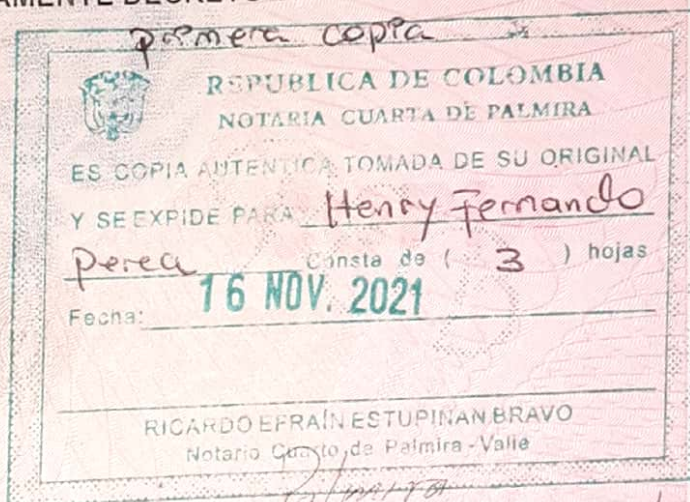 AMENTE DECRETO
primera copia
REPUBLICA DE COLOMBIA
NOTARIA CUARTA DE PALMIRA
ES COPIA AUTENTICA TOMADA DE SU ORIGINAL
Y SE EXPIDE PARA Henry Fernando
Perea Consta de ( 3 ) hojas
Fecha: 16 NOV. 2021
RICARDO EFRAÍN ESTUPIÑAN BRAVO
Notario Cuarto de Palmira - Valle